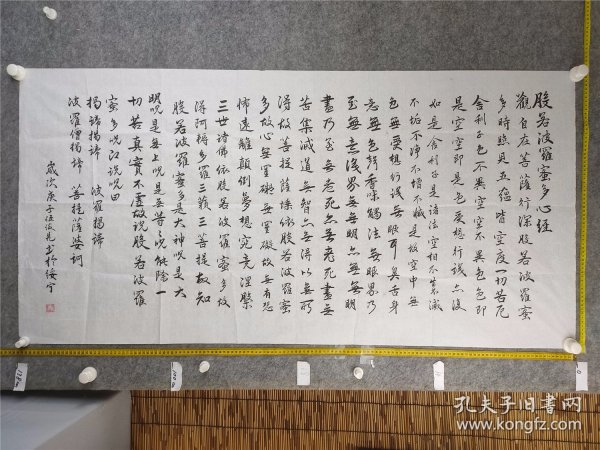 般若波羅蜜多心経
觀自在菩薩行深般若波羅蜜
多時照見五蕴皆空度一切苦厄
舍利子色不異空空不異色色即
是空空即是色受想行識亦復
如是舍利子是諸法空相不生不滅
不垢不淨不增不減是故空中無
色無受想行識無眼耳鼻舌身
意無色聲香味觸法無眼界乃
至無意識界無無明亦無無明
盡乃至無老死亦無老死盡無
苦集滅道無智亦無得以無所
得故菩提薩埵依般若波羅蜜
多故心無罣礙無罣礙故無有恐
怖遠離顛倒夢想究竟涅槃
三世諸佛依般若波羅蜜多故
得阿耨多羅三藐三菩提故知
般若波羅蜜多是大神呪是大
明呪是無上呪是無等呪能除一
切苦真實不虛故說般若波羅
蜜多呪即說呪曰
揭諦揭諦 波羅揭諦
波羅僧揭諦 菩提薩婆訶
歲次庚子 書於綏寧
孔夫子旧书网
kongfz.com